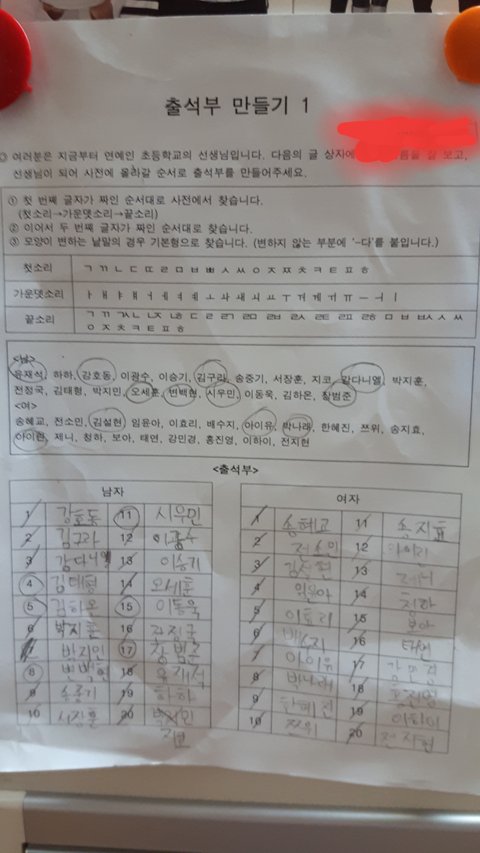 출석부 만들기 1
여러분은 지금부터 연예인 초등학교의 선생님입니다. 다음의 글 상자에 보고,
선생님이 되어 사전에 올라갈 순서로 출석부를 만들어주세요.
① 첫 번째 글자가 짜인 순서대로 사전에서 찾습니다.
(첫소리→가운뎃소리→끝소리)
② 이어서 두 번째 글자가 짜인 순서대로 찾습니다.
③ 모양이 변하는 낱말의 경우 기본형으로 찾습니다. (변하지 않는 부분에 '-다'를 붙입니다.)
첫소리 ㄱ ㄲ ㄴ ㄷ ㄸ ㄹ ㅁ ㅂ ㅃ ㅅ ㅆ ㅇ ㅈ ㅉ ㅊ ㅋ ㅌ ㅍ ㅎ
가운뎃소리 ㅏ ㅐ ㅑ ㅒ ㅓ ㅔ ㅕ ㅖ ㅗ ㅘ ㅙ ㅚ ㅛ ㅜ ㅝ ㅞ ㅟ ㅠ ㅡ ㅢ ㅣ
끝소리 ㄱ ㄲ ㄳ ㄴ ㄵ ㄶ ㄷ ㄹ ㄺ ㄻ ㄼ ㄽ ㄾ ㄿ ㅀ ㅁ ㅂ ㅄ ㅅ ㅆ
ㅇ ㅈ ㅊ ㅋ ㅌ ㅍ ㅎ
<남>
유재석, 하하, 강호동, 이광수, 이승기, 김구라, 송중기, 서장훈, 지코, 강다니엘, 박지훈,
전정국, 김태형, 박지민, 오세훈, 변백현, 시우민, 이동욱, 김하온, 장범준
<여>
송혜교, 전소민, 김설현, 임윤아, 이효리, 배수지, 아이유, 박나래, 한혜진, 쯔위, 송지효,
아이린, 제니, 청하, 보아, 태연, 강민경, 홍진영, 이하이, 전지현
<출석부>
남자 여자
1 강호동 11 시우민 1 송혜교 11 송지효
2 김구라 12 이광수 2 전소민 12 아이린
3 강다니엘 13 이승기 3 김설현 13 제니
4 김태형 14 오세훈 4 임윤아 14 청하
5 김하온 15 이동욱 5 이효리 15 보아
6 박지훈 16 전정국 6 배수지 16 태연
7 박지민 17 장범준 7 아이유 17 강민경
8 변백현 18 유재석 8 박나래 18 홍진영
9 송중기 19 하하 9 한혜진 19 이하이
10 서장훈 20 박지민 10 쯔위 20 전지현
지코